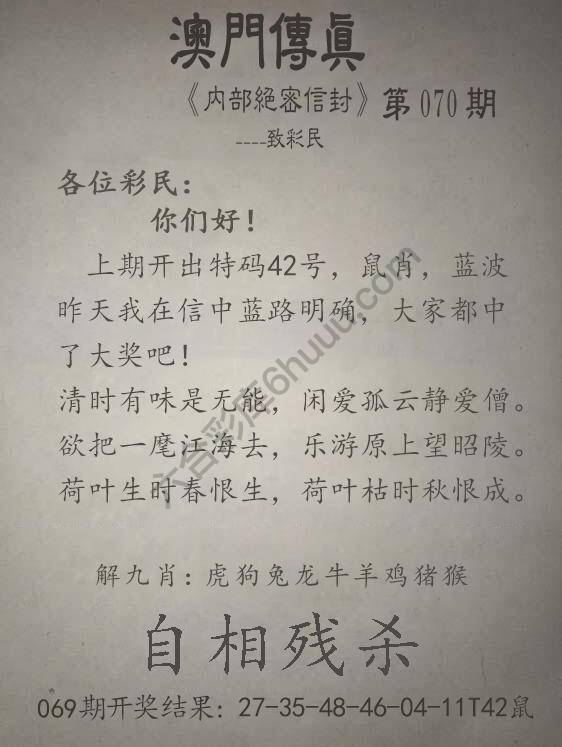 澳門傳眞
《内部絕密信封》第070期
----致彩民
各位彩民：
你们好！
上期开出特码42号，鼠肖，蓝波
昨天我在信中蓝路明确，大家都中
了大奖吧！
清时有味是无能，闲爱孤云静爱僧。
欲把一麾江海去，乐游原上望昭陵。
荷叶生时春恨生，荷叶枯时秋恨成。
解九肖：虎狗兔龙牛羊鸡猪猴
自相残杀
069期开奖结果：27-35-48-46-04-11T42鼠
六合彩库6huuu.com